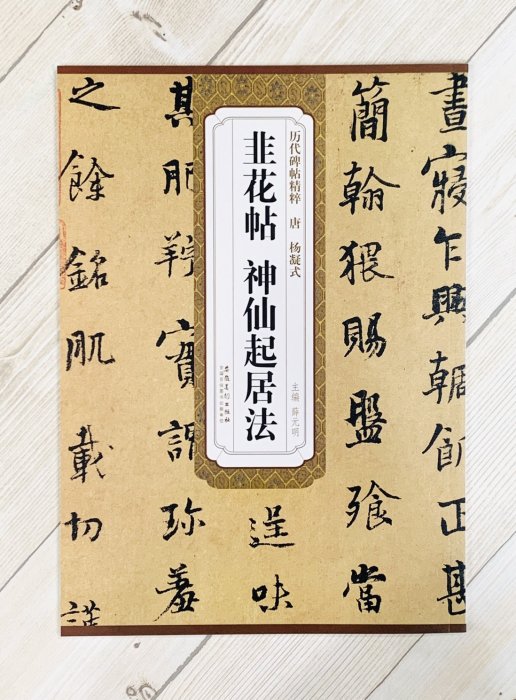 晝寢乍興輖飢正甚
簡翰猥賜盤飱當
逞味
其肥羜實謂珍羞
之餘銘肌載切謹
历代碑帖精粹 唐 杨凝式
韭花帖 神仙起居法
主编 薛元明
安徽美术出版社